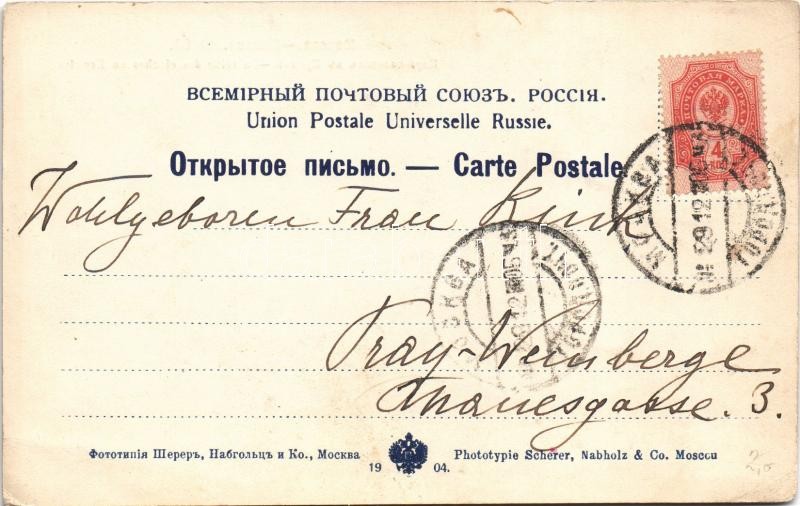 ВСЕМIРНЫЙ ПОЧТОВЫЙ СОЮЗЪ. РОССIЯ.
Union Postale Universelle Russie.
Открытое письмо. — Carte Postale.
ПОЧТОВАЯ МАРКА
4
МОСКВА
Wohlgeboren Frau
МОСКВА
Prag-Weinberge
Manesgasse. 3.
Фототипiя Шереръ, Набгольцъ и Ко., Москва
19 04.
Phototypie Scherer, Nabholz & Co. Moscou